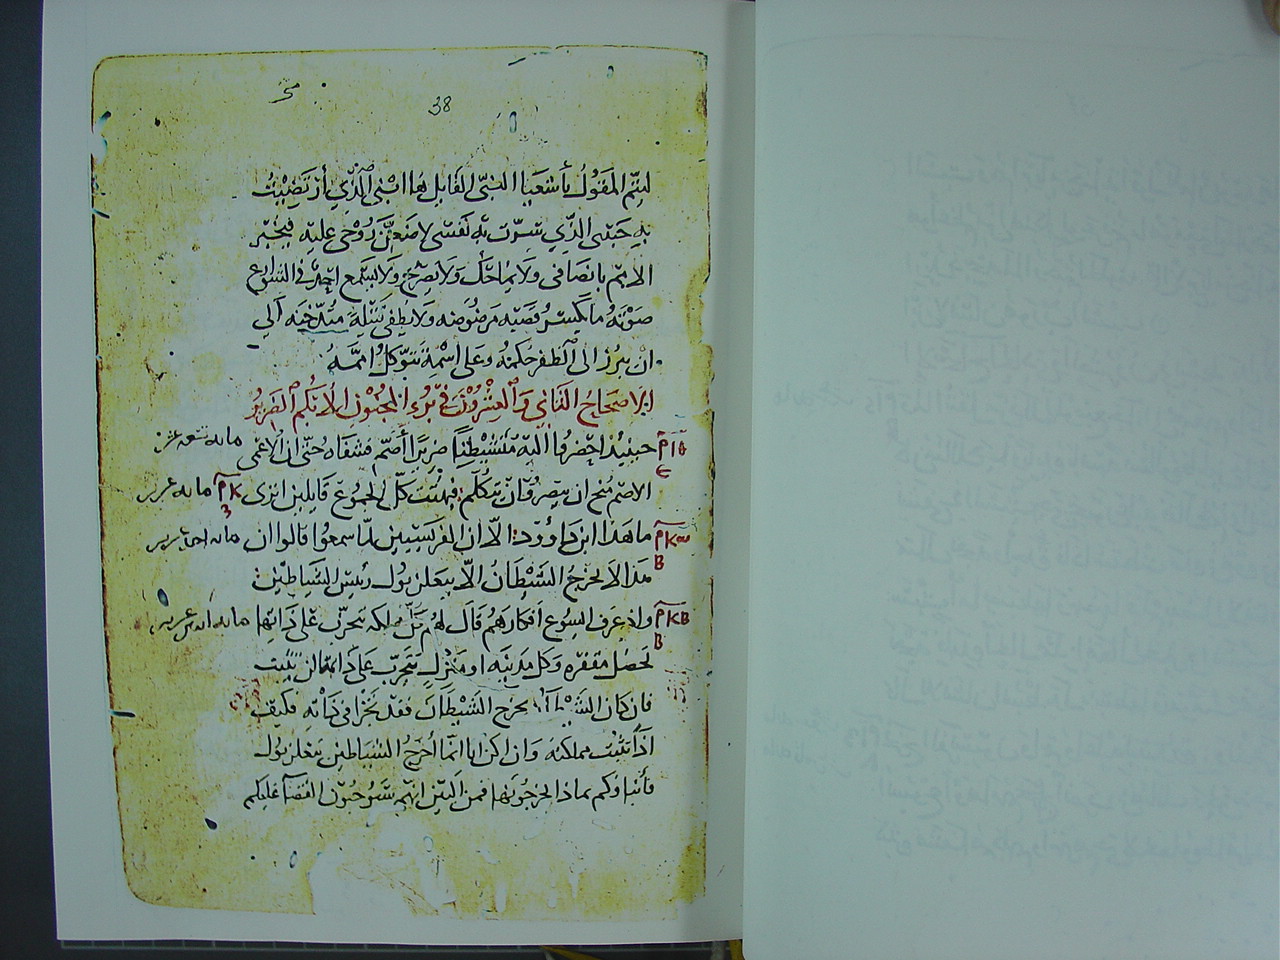 38
ليتم المقول باشعيا النبي القايل هما ابني الذي ارتضيت
به حبيبى الذي سرت به نفسى لاضعن روحى عليه فيخبر
الامم بانصافى ولا يماحك ولا يصرخ ولا يسمع احد في الشوارع
صوته ما يكسر قصبه مرضوضه ولا يطفى فتيلة مدخنه الي
ان يبرز الى الظفر حكمه وعلى اسمه تتوكل اممه
الاصحاح الثاني والعشرون في برء المجنون الابكم الضرير
حينيذ احضروا اليه متشيطنا ضريرا أصم فشفاه حتى ان الاعمى مايه تسعه عشر
الاصم منح ان يبصر وان يتكلم فبهتت كل الجموع قايلين اترى
ما هذا ابن داوود الا ان الفريسيين لما سمعوا قالوا ان
هذا لا يخرج الشيطان الا ببعلزبول رييس الشياطين
واذ عرف ايسوع افكارهم قال لهم كل مملكه تتحزب على ذاتها
تحصل مقفره وكل مدينه او منزل يتحزب على ذاته لن يثبت
فان كان الشيطان يخرج الشيطان فقد تحزب في ذاته فكيف
اذا تثبت مملكته وان اكن انا انما أخرج الشياطين ببعلزبول
فأبناوكم بماذا يخرجونها فمن البين انهم يستوجبون القضآ عليكم